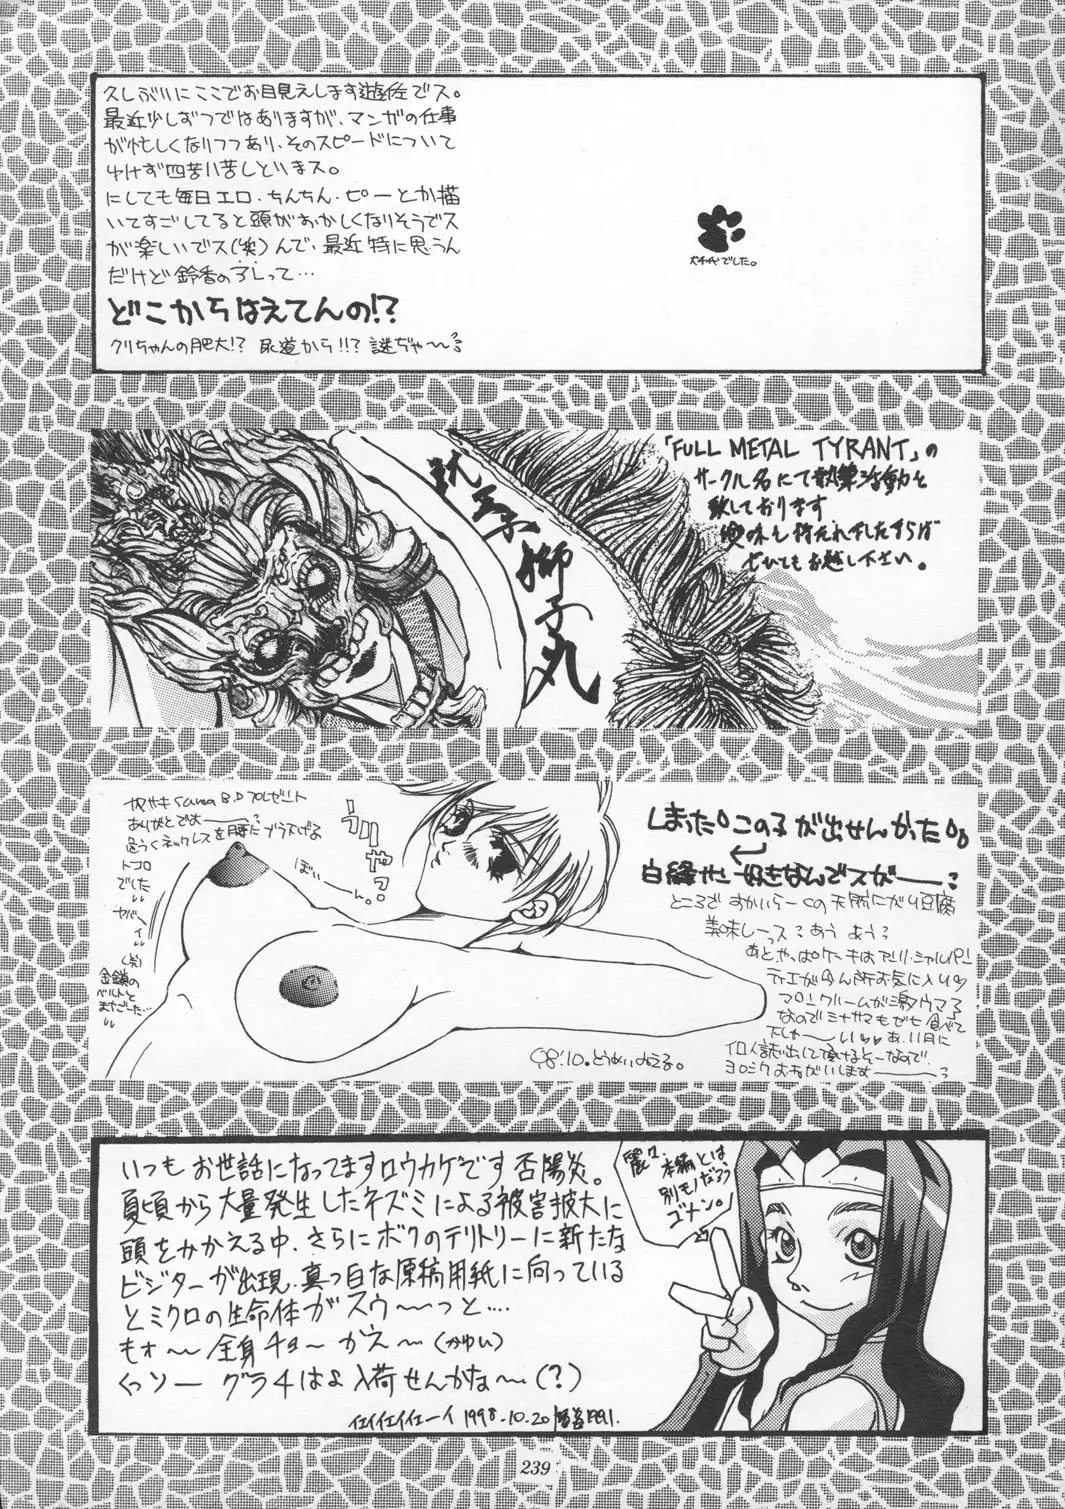 久しぶりにここでお目見えします遊佐でス。
最近少しずつではありますが、マンガの仕事
が忙しくなりつつあり、そのスピードについて
ゆけず四苦八苦しどいまス。
にしても毎日エロ・ちんちん・ピーとか描
いてすごしてると頭がおかしくなりそうでス
が楽しいでス(笑)んで、最近特に思うん
だけど鈴香のアレって…
どこからはえてんの!?
クリちゃんの肥大!? 尿道から!!? 謎ぢゃ〜〜?
でした。
「FULL METAL TYRANT」の
サークル名にて執筆活動を
致しております
興味を持たれましたすらば
ぜひでもお越し下さい。
獅子丸
B.D プレゼント
ありがとでスー?
思うくネックレスを腰にブラ下げる
トコロ
でした
ヤバイ
(笑)
金鎖の
ベルトと
まちごーた…
ぼいーん。
しまった。この子が出せんかった。
好きなんでスがー?
ところで すかいらーくの天然にがり豆腐
美味しーっス? あう よう?
あとやっぱケーキはアンリ・シャルパ!
ティエが今ん所お気に入り
マロンクリームが激ウマる
なのでミナサマもぜヒ食べて
あ、11月に
ヨロシクおねがいしますー?
98'.10.とうめいみえる。
いつもお世話になってますロウカゲです否陽炎。
夏頃から大量発生したネズミによる被害拡大に
頭をかかえる中、さらにボクのテリトリーに新たな
ビジターが出現、真っ白な原稿用紙に向っている
とミクロの生命体がスウ〜〜っと….
もォ〜 全身チョ〜 かえ〜(かゆい)
くっソー グラ4はよ入荷せんかな〜(?)
1998.10.20
本編とは
別モノだろう
ゴメン。
239